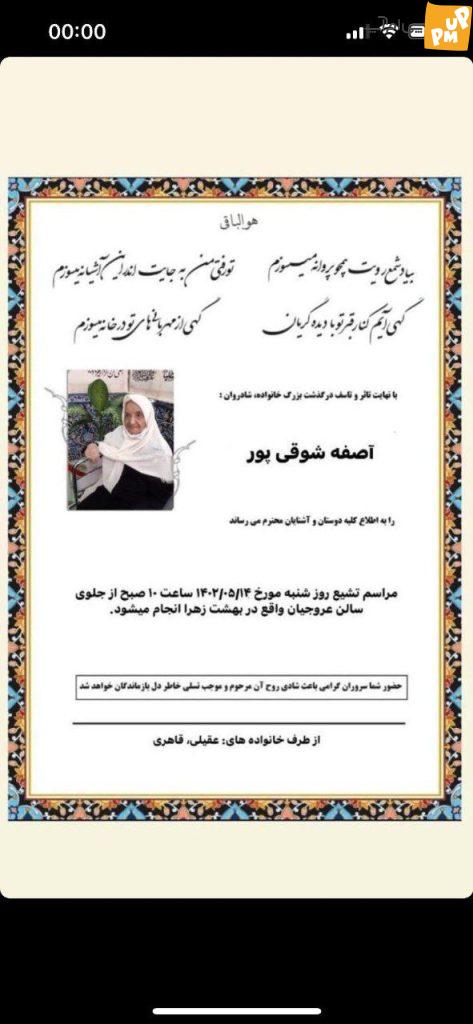 00:00
UP
PM
هوالباقی
بیاد شمع رویت همچو پروانه میسوزم
تو رفتی من به جایت اندر این آشیانه میسوزم
گهی آیم کنار قبر تو با دیده گریان
گهی از مهربانی‌های تو در خانه میسوزم
با نهایت تاثر و تاسف درگذشت بزرگ خانواده، شادروان :
آصفه شوقی پور
را به اطلاع کلیه دوستان و آشنایان محترم می رساند
مراسم تشیع روز شنبه مورخ ۱۴۰۲/۰۵/۱۴ ساعت ۱۰ صبح از جلوی
سالن عروجیان واقع در بهشت زهرا انجام میشود.
حضور شما سروران گرامی باعث شادی روح آن مرحوم و موجب تسلی خاطر دل بازماندگان خواهد شد
از طرف خانواده های: عقیلی، قاهری